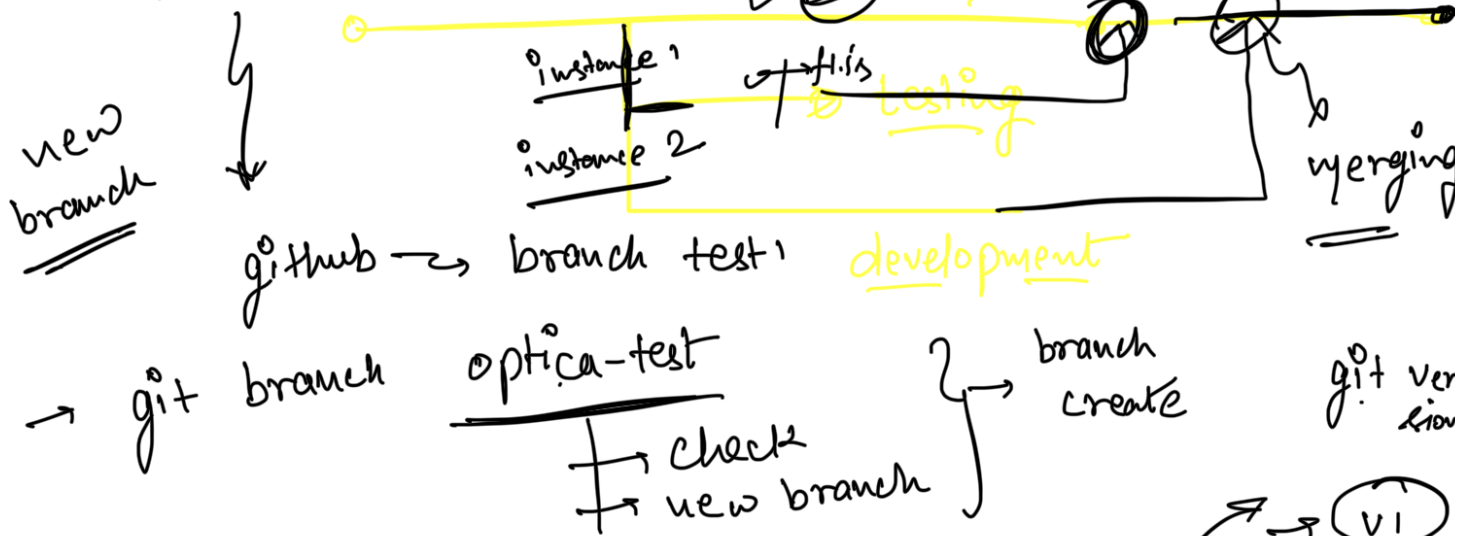 instance 1
testing
instance 2
new
branch
merging
github → branch test1
development
→ git branch optica-test
→ check
→ new branch
→ branch
create
git ver
sion
→ V1